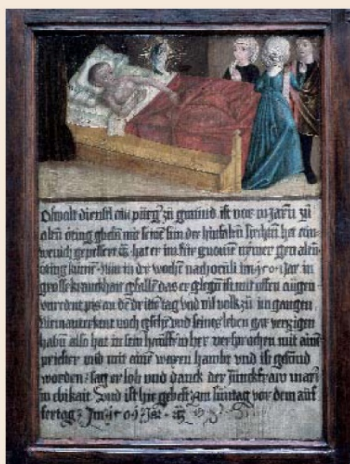 Oswalt dienstl ein pürg zu gmünd ist vor jarn zu
alten öting gwesn mit seine sun der hinfalen siechtn hat ein
wenich gepessert hat er im für gnomen gen alten
öting Nun in der wochn nach oculi im 1501 jar in
grosse kranckhait gefallen das er glegn ist mit offen augen
unredent pis an de dritn tag und vil volk zu im gangen
erkent noch gsehn und seines leben gar verzigen
haben also hat in sein hausfraw her versprochen mit aim
priester und mit aine und ist gesund
worden sag er lob und danck der Junckfraw mari
in ebikait Und ist hie am suntag vor dem auf
fertag Im 1501 Jar